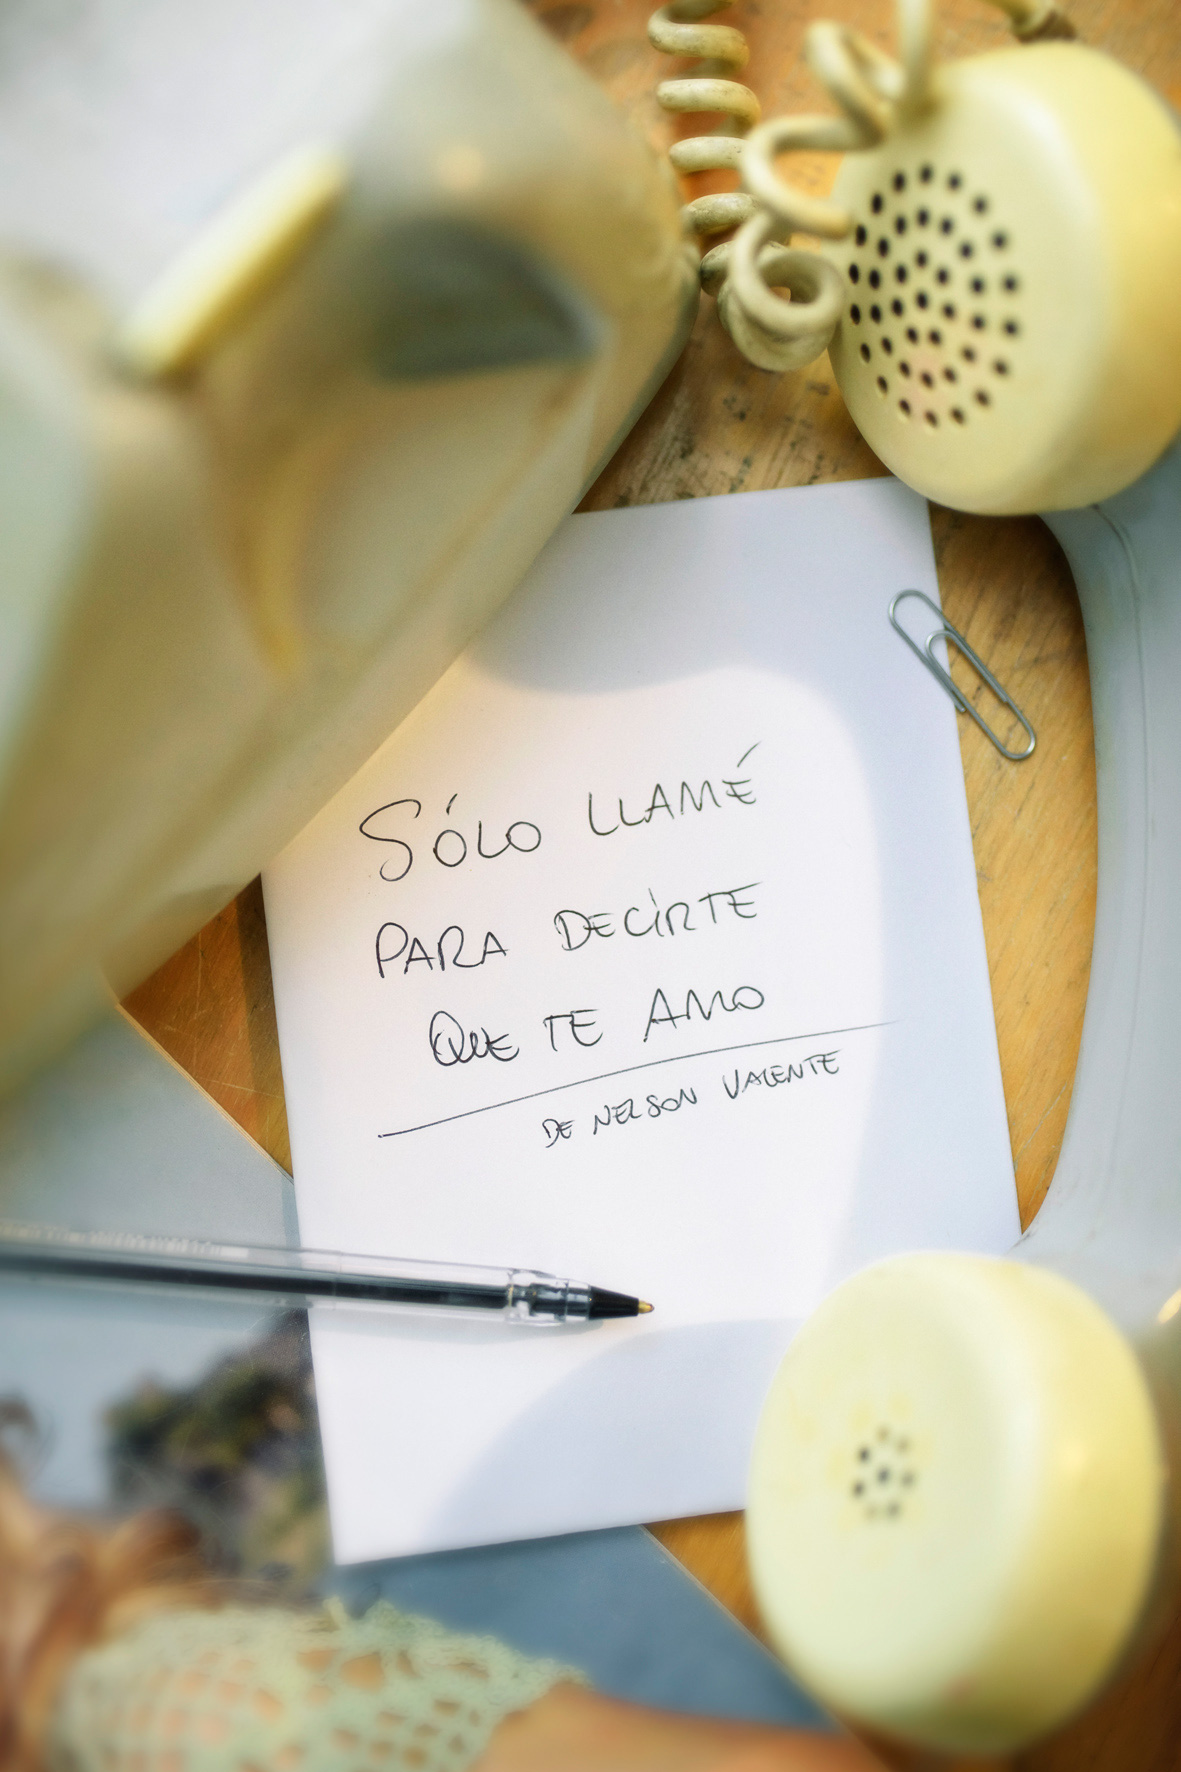 SÓLO LLAMÉ
PARA DECIRTE
QUE TE AMO
DE NELSON VALENTE